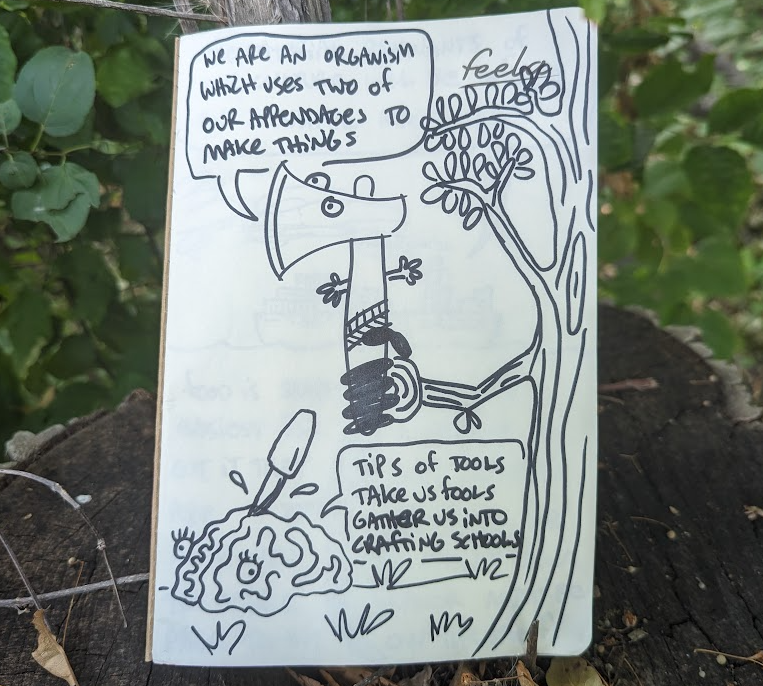 WE ARE AN ORGANISM
WHICH USES TWO OF
OUR APPENDAGES TO
MAKE THINGS
TIPS OF TOOLS
TAKE US FOOLS
GATHER US INTO
CRAFTING SCHOOLS